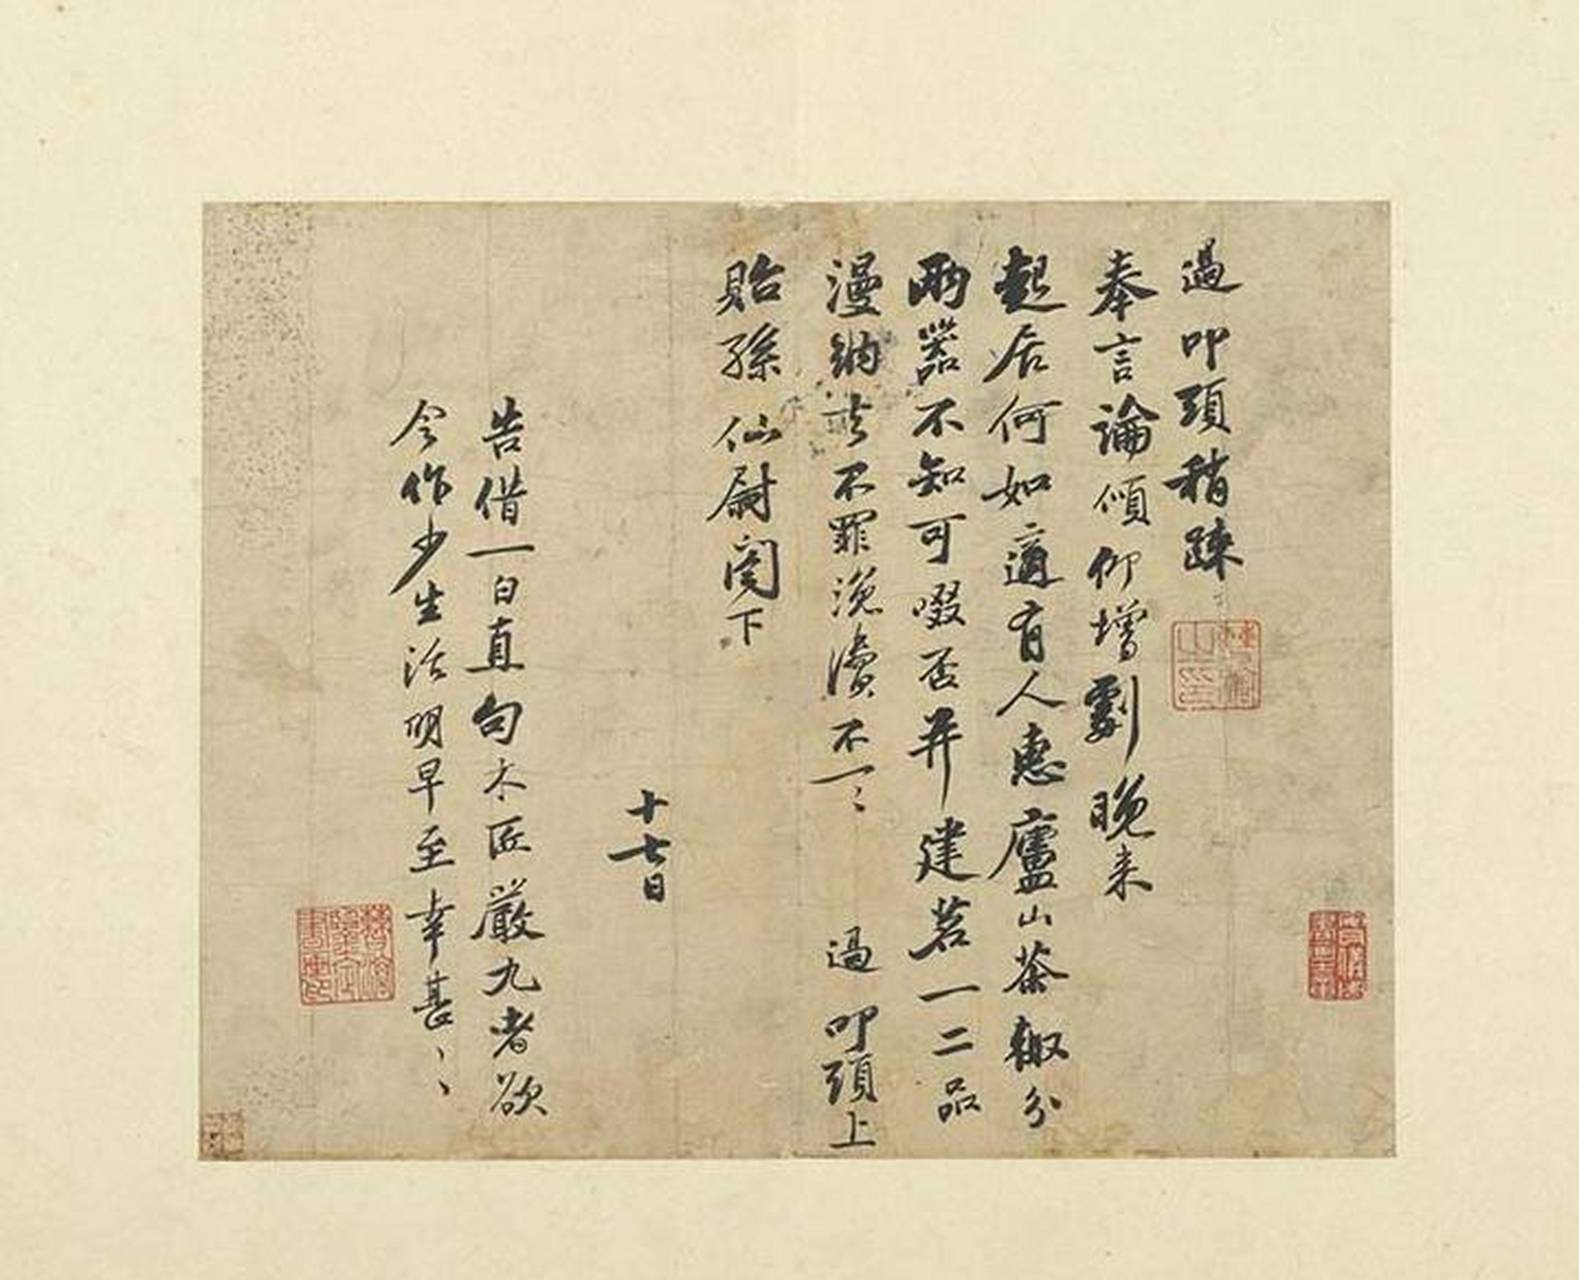 過叩頭稍疎
奉言論傾仰增劇晚来
起居何如適有人惠廬山茶輙分
兩器不知可啜否并建茗一二品
漫納去不罪浼瀆不一〻 過叩頭上
貽孫仙尉閤下
十七日
告借一白直勾木匠嚴九者欲
令作少生活明早至幸甚〻〻